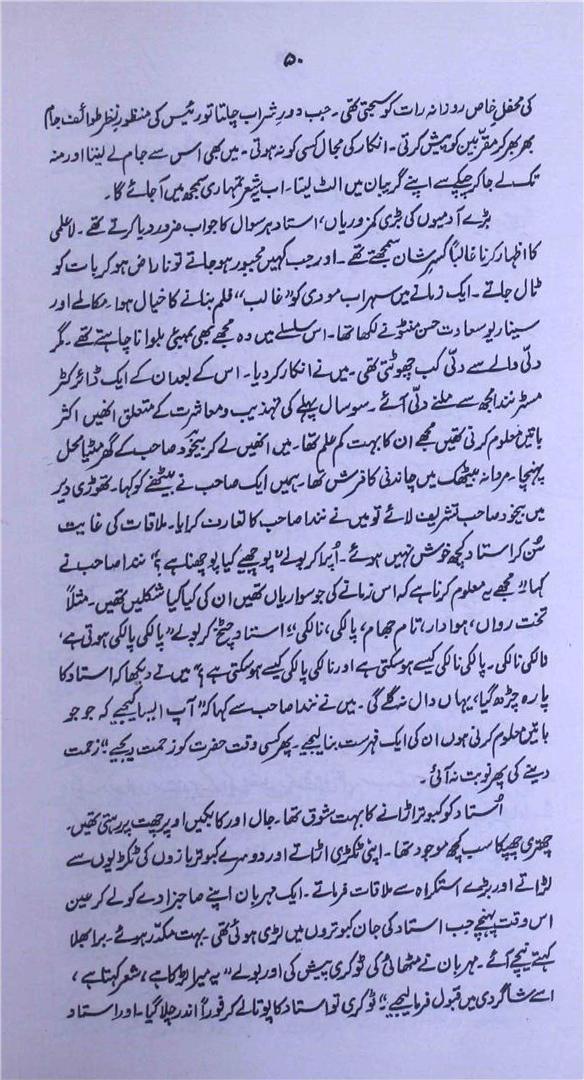 ۵۰
کی محفلِ خاص روزانہ رات کو سجتی تھی۔ جب دورِ شراب چلتا تو رئیس کی منظورِ نظر طوائف جام
بھر بھر کر مقربین کو پیش کرتی۔ انکار کی مجال کسی کو نہ ہوتی۔ میں بھی اس سے جام لے لیتا اور منہ
تک لے جا کر چپکے سے اپنے گریبان میں الٹ لیتا۔ اب یہ شعر تمہاری سمجھ میں آ جائے گا۔
بڑے آدمیوں کی بڑی کمزوریاں، استاد ہر سوال کا جواب ضرور دیا کرتے تھے۔ لاعلمی
کا اظہار کرنا غالباً کسرِ شان سمجھتے تھے۔ اور جب کہیں مجبور ہو جاتے تو ناراض ہو کر بات کو
ٹال جاتے۔ ایک زمانے میں سہراب مودی کو "غالب" فلم بنانے کا خیال ہوا۔ مکالمے اور
سیناریو سعادت حسن منٹو نے لکھا تھا۔ اس سلسلے میں وہ مجھے بھی بمبئی بلوانا چاہتے تھے۔ مگر
دلّی والے سے دلّی کب چھوٹتی تھی۔ میں نے انکار کر دیا۔ اس کے بعد ان کے ایک ڈائرکٹر
مسٹر نندا مجھ سے ملنے دلّی آئے۔ سو سال پہلے کی تہذیب و معاشرت کے متعلق انھیں اکثر
باتیں معلوم کرنی تھیں مجھے ان کا بہت کم علم تھا۔ میں انھیں لے کر بیخود صاحب کے گھر مٹیا محل
پہنچا۔ مردانہ بیٹھک میں چاندنی کا فرش تھا۔ ہمیں ایک صاحب نے بیٹھنے کو کہا۔ تھوڑی دیر
میں بیخود صاحب تشریف لائے تو میں نے نندا صاحب کا تعارف کرایا۔ ملاقات کی غایت
سُن کر استاد کچھ خوش نہیں ہوئے۔ اُپرا کر بولے "پوچھیے کیا پوچھنا ہے؟" نندا صاحب نے
کہا "مجھے یہ معلوم کرنا ہے کہ اس زمانے کی جو سواریاں تھیں ان کی کیا کیا شکلیں تھیں۔ مثلاً
تخت رواں، ہوادار، تام جھام، پالکی، نالکی"، استاد چیخ کر بولے "پالکی پالکی ہوتی ہے،
نالکی نالکی۔ پالکی نالکی کیسے ہو سکتی ہے اور نالکی پالکی کیسے ہو سکتی ہے؟" میں نے دیکھا کہ استاد کا
پارہ چڑھ گیا، یہاں دال نہ گلے گی۔ میں نے نندا صاحب سے کہا کہ "آپ ایسا کیجیے کہ جو جو
باتیں معلوم کرنی ہوں ان کی ایک فہرست بنا لیجیے۔ پھر کسی وقت حضرت کو زحمت دیجیے"۔ زحمت
دینے کی پھر نوبت نہ آئی۔
اُستاد کو کبوتر اڑانے کا بہت شوق تھا۔ جال اور کابکیں اوپر چھت پر رہتی تھیں۔
چھتری چھپکا سب کچھ موجود تھا۔ اپنی ٹکڑی اڑاتے اور دوسرے کبوتر بازوں کی ٹکڑیوں سے
لڑاتے اور بڑے استکراہ سے ملاقات فرماتے۔ ایک مہربان اپنے صاحبزادے کو لے کر عین
اس وقت پہنچے جب استاد کی جان کبوتروں میں لڑی ہوئی تھی۔ بہت مکدّر ہوئے۔ برا بھلا
کہتے نیچے آئے۔ مہربان نے مٹھائی کی ٹوکری پیش کی اور بولے "یہ میرا لڑکا ہے، شعر کہتا ہے،
اسے شاگردی میں قبول فرما لیجیے"۔ ٹوکری تو استاد کا پوتا لے کر فوراً اندر چلا گیا۔ اور استاد